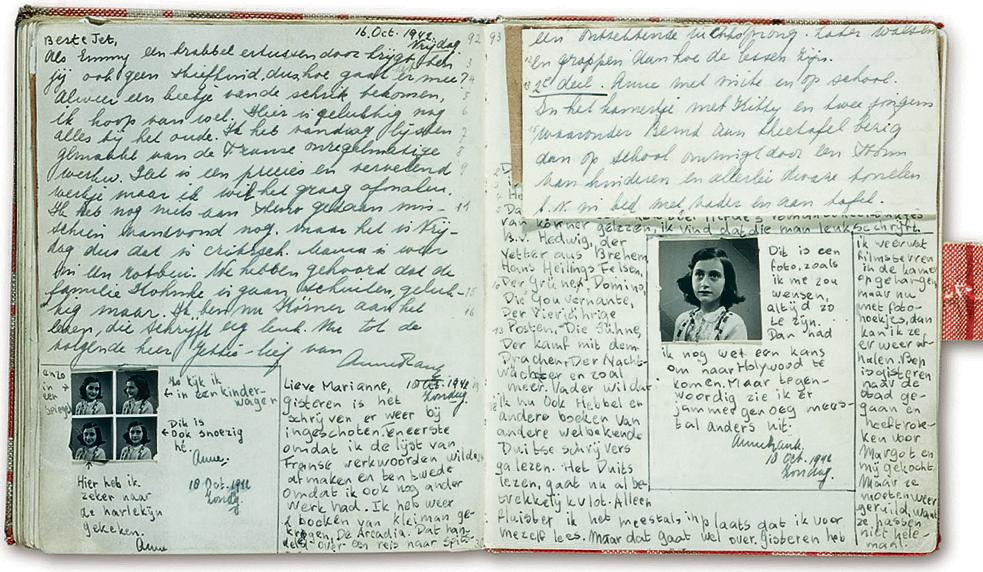 16. Oct. 1942
Vrijdag. 92
Beste Jet,
Als Emmy een krabbel ertussen door krijgt, ben
jij ook geen stiefkind, dus hoe gaat er mee?
Alweer een beetje van de schrik bekomen,
ik hoop van wel. Hier is gelukkig nog
alles bij het oude. Ik heb vandaag lijsten
gemaakt van de Franse onregelmatige
werkw. Het is een precies en vervelend
werkje maar ik wil het graag afmaken.
Ik heb nog niets aan steno gedaan mis-
schien vanavond nog, maar het is vrij-
dag dus dat is critisch. Mama is weer
in een rotbui. We hebben gehoord dat de
familie is gaan geluk-
kig maar. Ik ben nu Körner aan het
lezen, die schrijft erg leuk. Nu tot de
volgende keer Jettie-lief van
Anne Frank
anzo
in
een
spiegel
Zo kijk ik
in een kinder-
wagen
Dit is
ook snoezig
hè.
Anne.
Hier heb ik
zeker naar
de harlekijn
gekeken.
Anne
18 Oct. 1942
Zondag
Lieve Marianne, 18 Oct. 1942
Zondag
gisteren is het
schrijven er weer bij
ingeschoten. Eneerste
omdat ik de lijst van
Franse werkwoorden wilde
afmaken en ten twede
omdat ik ook nog ander
werk had. Ik heb weer
2 boeken van kleiman ge-
kregen, De Arcadia. Dat han-
deld over een reis naar Spits-
93
een ontzettende luchtsprong. Later walsen
en grappen aan hoe de lessen zijn.
2e deel. Anne met witte en op school.
In het kamertje met Kitty en twee jongens
waaronder Bernd aan theetafel bezig
dan op school omringd door een drom
van kinderen en allerlei dwaze tonelen
b.v. in bed met vader en aan tafel.
van Körner gelezen, ik vind dat die man leuk schrijft.
B.v. Hedwig, der
Vetter aus Bremen
Hans Heilings Felsen,
Der Grüne Domino,
Die Gouvernante,
Der Vierjährige
Posten, Die Sühne,
Der kampf mit dem
Drachen, Der Nacht-
wächter en zoal
meer. Vader wil dat
ik nu ook Hebbel en
andere boeken van
andere welbekende
Duitse schrijvers
ga lezen. Het Duits
lezen, gaat nu al be-
trekkelijk vlot. Alleen
fluister ik het meestal inplaats dat ik voor
mezelf lees. Maar dat gaat wel over. Gisteren heb
Dit is een
foto, zoals
ik me zou
wensen,
altijd zo
te zijn.
Dan had
ik nog wel een kans
om naar Holywood te
komen. Maar tegen-
woordig zie ik er
jammer genoeg mees-
tal anders uit.
Annefrank.
18 Oct. 1942
Zondag.
ik weer wat
filmsterren
in de kamer
opgehangen
maar nu
met foto
hoekjes, dan
kan ik ze
er weer af-
halen. Bep
is gisteren
naar de
stad ge-
gaan en
heeft rok-
ken voor
Margot en
mij gekocht.
Maar ze
moeten weer
geruild, want
ze passen
niet hele-
maal.